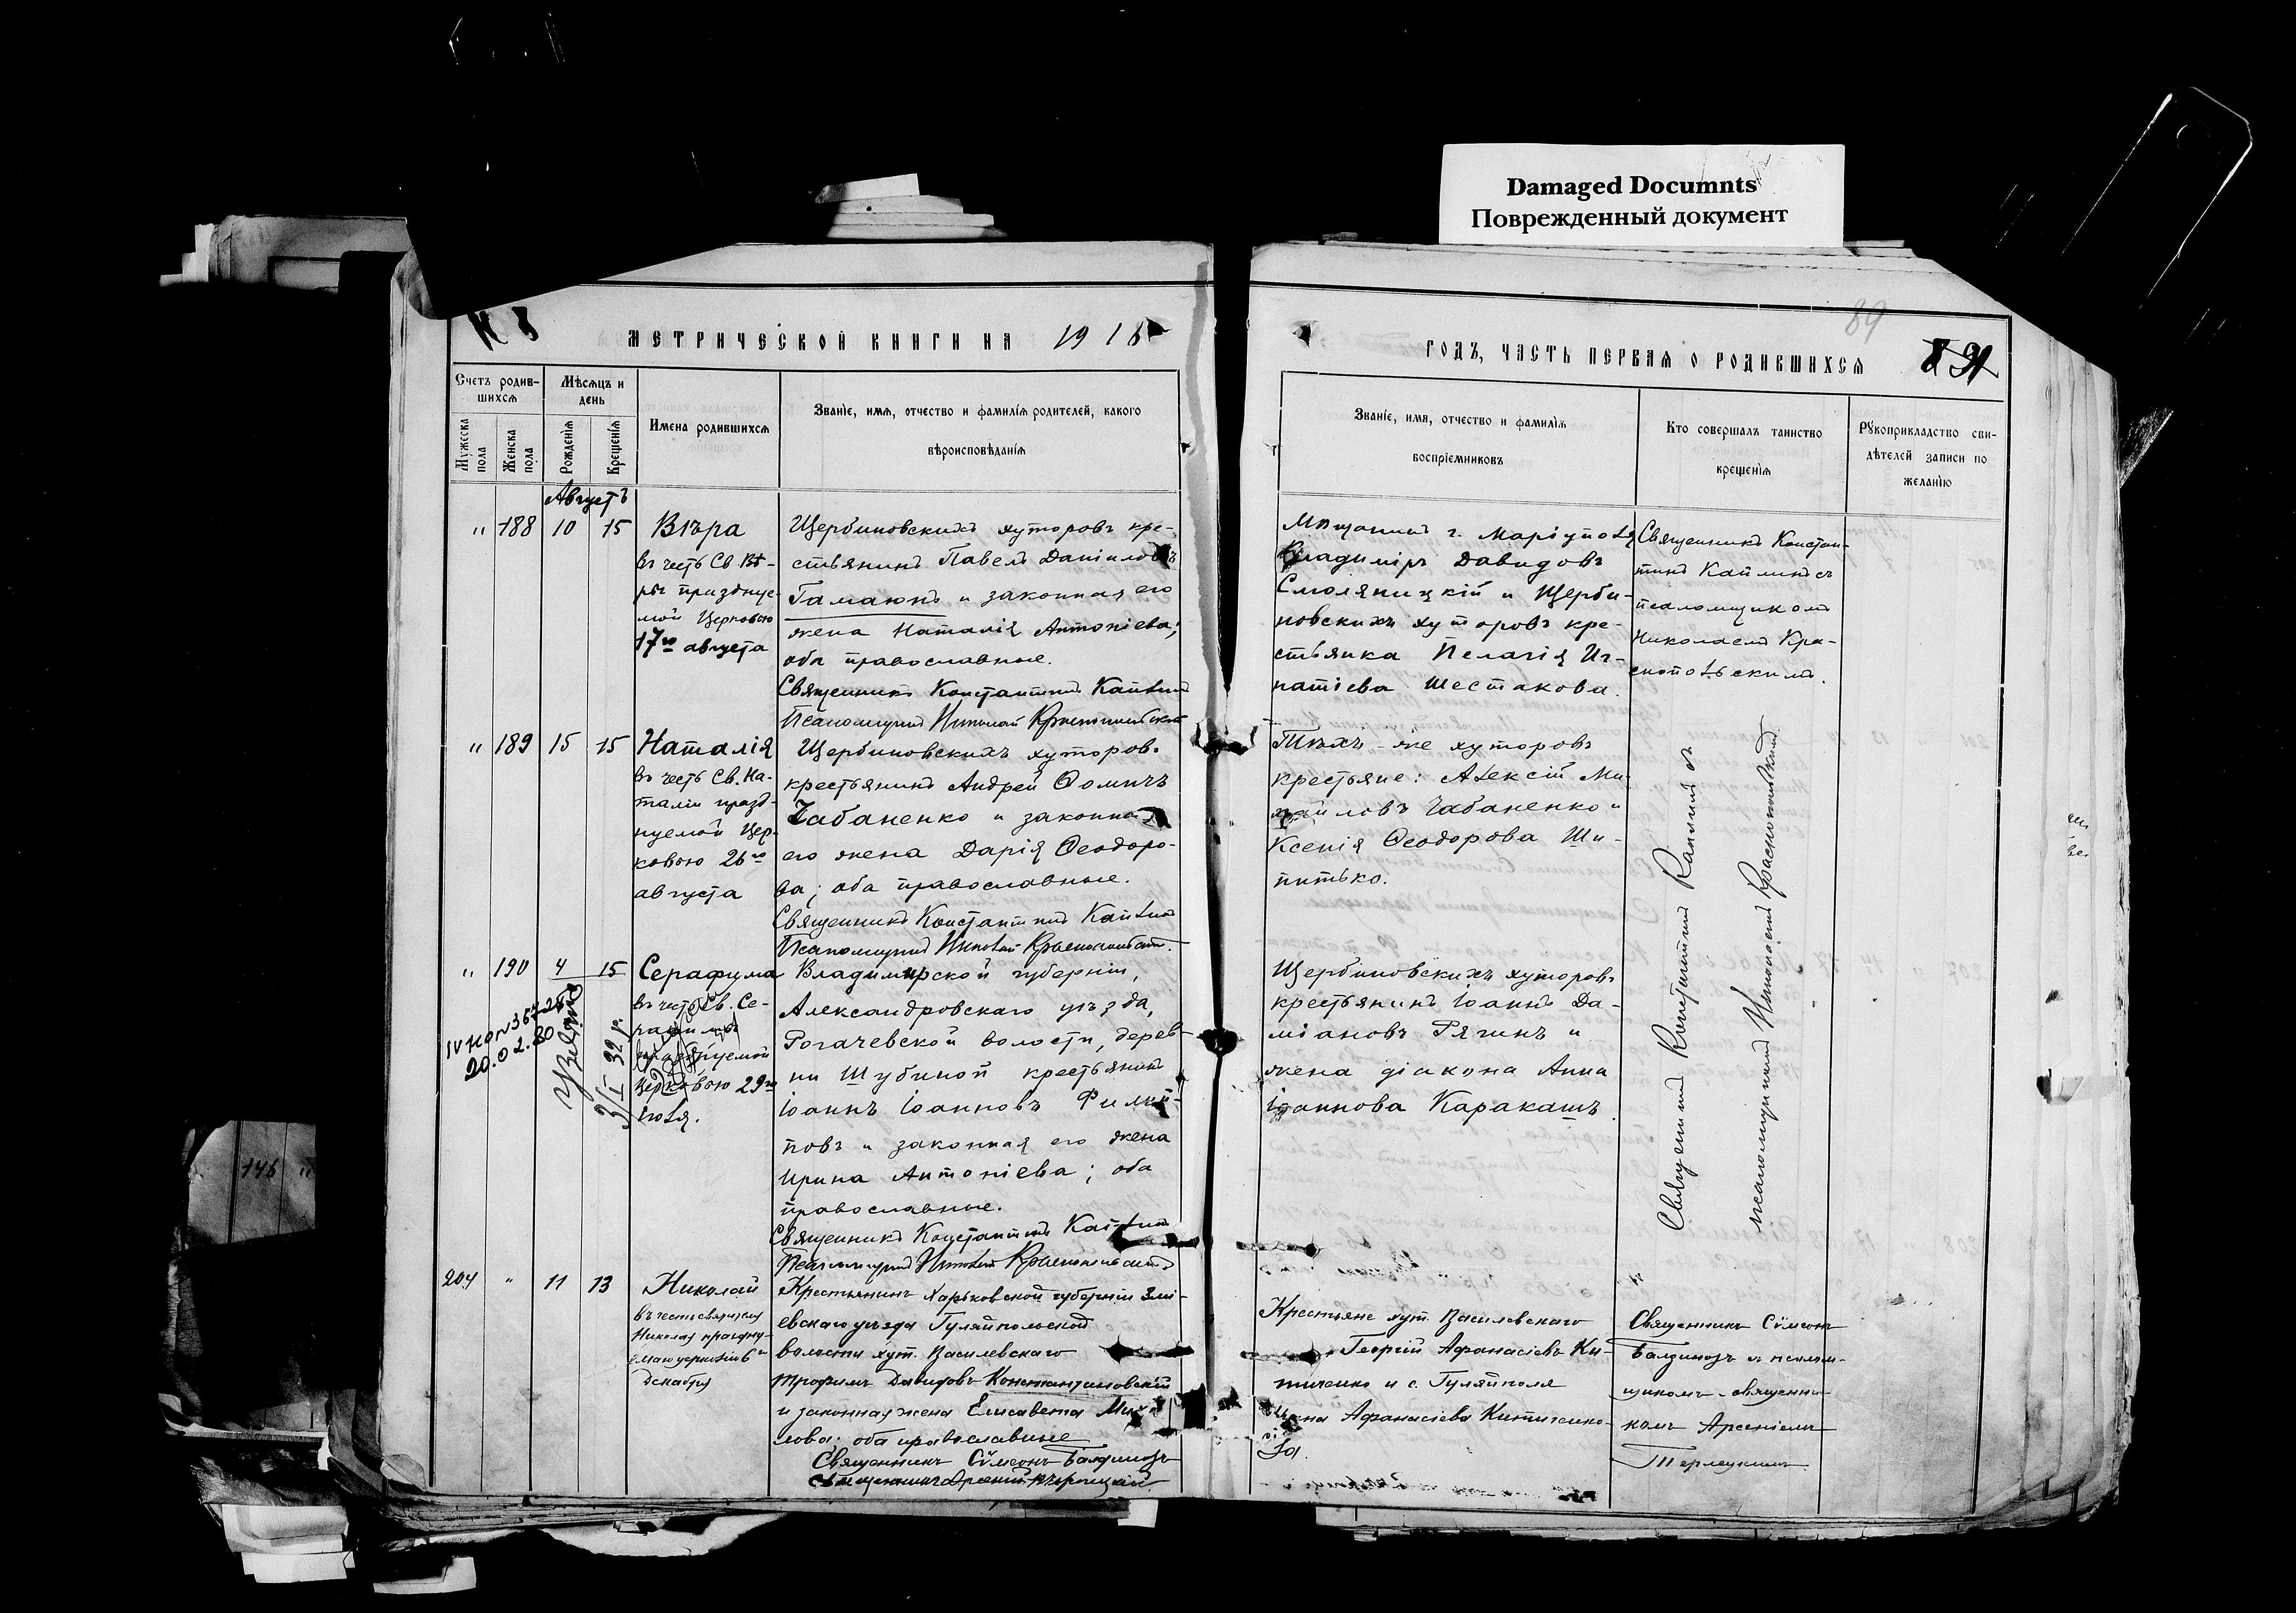 Damaged Documnts
Поврежденный документ
МЕТРИЧЕСКОЙ КНИГИ НА 1916
ГОДЪ, ЧАСТЬ ПЕРВАЯ О РОДИВШИХСЯ
89
Счетъ родив-
шихся
Мужеска
пола
Женска
пола
Мѣсяцъ и
день
Рожденія
Крещенія
Имена родившихся
Званіе, имя, отчество и фамилія родителей, какого
вѣроисповѣданія
Званіе, имя, отчество и фамилія
воспріемниковъ
Кто совершалъ таинство
крещенія
Рукоприкладство сви-
дѣтелей записи по
желанію
Августъ
" 188 10 15
Вѣра
въ честь Св. Вѣ-
ры празднуе-
мой Церковью
17го августа
Щербиновскихъ хуторовъ кре-
стьянинъ Павелъ Даніиловъ
Гамаюнъ и законная его
жена Наталія Антоніева;
оба православные.
Священникъ Константинъ Каплинъ
Псаломщикъ Николай Краснопольскій
Мѣщанинъ г. Маріуполя
Владиміръ Давидовъ
Смоляницкій и Щерби-
новскихъ хуторовъ кре-
стьянка Пелагія Иг-
натіева Шестакова.
Священникъ Констан-
тинъ Каплинъ съ
псаломщикомъ
Николаемъ Кра-
снопольскимъ.
" 189 15 15
Наталія
въ честь Св. На-
таліи празд-
нуемой Цер-
ковью 26го
августа
Щербиновскихъ хуторовъ
крестьянинъ Андрей Ѳомичъ
Чабаненко и законная
его жена Дарія Ѳеодоро-
ва; оба православные.
Священникъ Константинъ Каплинъ
Псаломщикъ Николай Краснопольскій
Тѣхъ-же хуторовъ
крестьяне: Алексій Ми-
хайловъ Чабаненко и
Ксенія Ѳеодорова Ши-
питько.
Священникъ Константинъ Каплинъ съ
псаломщикомъ Николаемъ Краснопольскимъ
" 190 4 15
Серафима
въ честь Св. Се-
рафимы
празднуемой
Церковью 29го
іюля.
20.02.80
3/I 32 г.
Владимирской губерніи,
Александровскаго уѣзда,
Рогачевской волости, дерев-
ни Шубиной крестьянинъ
Іоаннъ Іоанновъ Филип-
повъ и законная его жена
Ирина Антоніева; оба
православные.
Священникъ Константинъ Каплинъ
Псаломщикъ Николай Краснопольскій
Щербиновскихъ хуторовъ
крестьянинъ Іоаннъ Да-
міановъ Рягинъ и
жена діакона Анна
Іоаннова Каракашъ.
204 " 11 13
Николай
въ честь святителя
Николая праздну-
емаго церковію 6го
Декабря
Крестьянинъ Харьковской губерніи Змі-
евскаго уѣзда Гуляйпольской
волости хут. Василевскаго
Трофимъ Давидовъ Константиновскій
и законная жена Елисавета Михай-
лова; оба православные
Священникъ Сѵмеонъ
Священникъ Арсеній Терлецкій
Крестьяне хут. Василевскаго
Георгій Афанасіевъ Ки-
тиченко и с. Гуляйполя
Афанасіева Китиченко-
ва.
Священникъ Сѵмеонъ
и псалом-
щикомъ-священни-
комъ Арсеніемъ
Терлецкимъ.
146 "